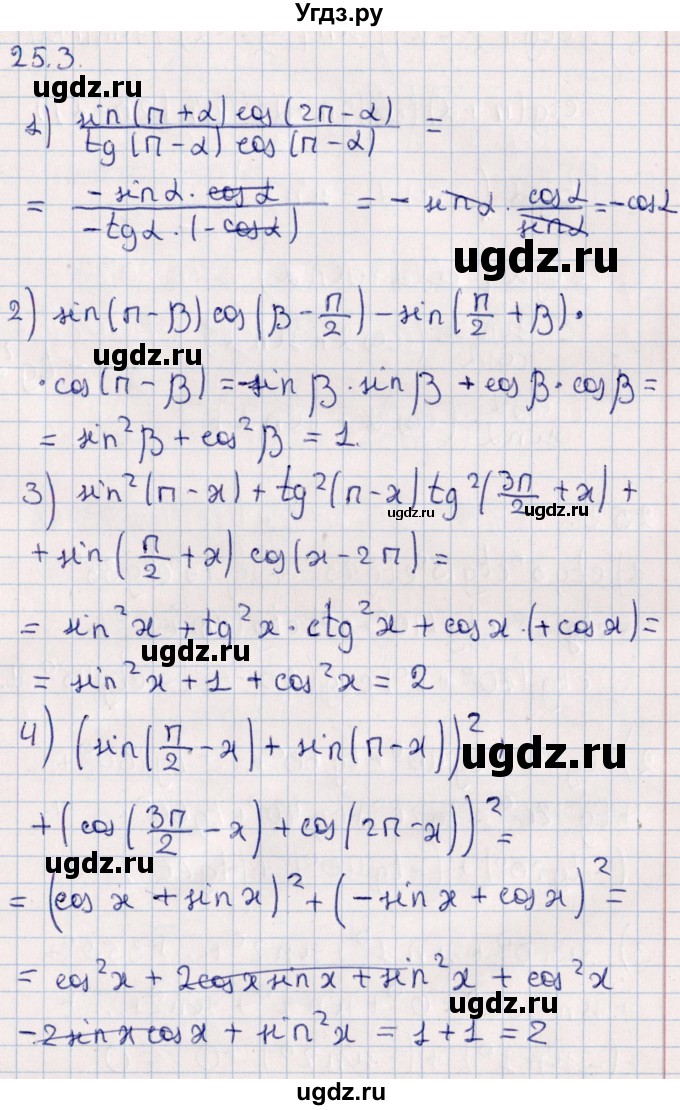 Угдз.ру
25.3.
ugdz.ru
1) sin(π+α) cos(2π−α) / tg(π−α) cos(π−α) =
= −sinα · cosα / −tgα · (−cosα) = − sinα · cosα / sinα = −cosα
ugdz.ru
ugdz.ru
2) sin(π−β) cos(β − π/2) − sin(π/2 + β) ·
ugdz.ru
· cos(π−β) = sinβ · sinβ + cosβ · cosβ =
= sin²β + cos²β = 1.
3) sin²(π−x) + tg²(π−x) tg²(3π/2 + x) +
ugdz.ru ugdz.ru
+ sin(π/2 + x) cos(x−2π) =
= sin²x + tg²x · ctg²x + cosx · (+cosx) =
ugdz.ru
= sin²x + 1 + cos²x = 2
4) (sin(π/2 − x) + sin(π−x))²
ugdz.ru
+ (cos(3π/2 − x) + cos(2π−x))² =
ugdz.ru
= (cosx + sinx)² + (−sinx + cosx)² =
= cos²x + 2cosxsinx + sin²x + cos²x
ugdz.ru
−2sinxcosx + sin²x = 1+1 = 2
ugdz.ru